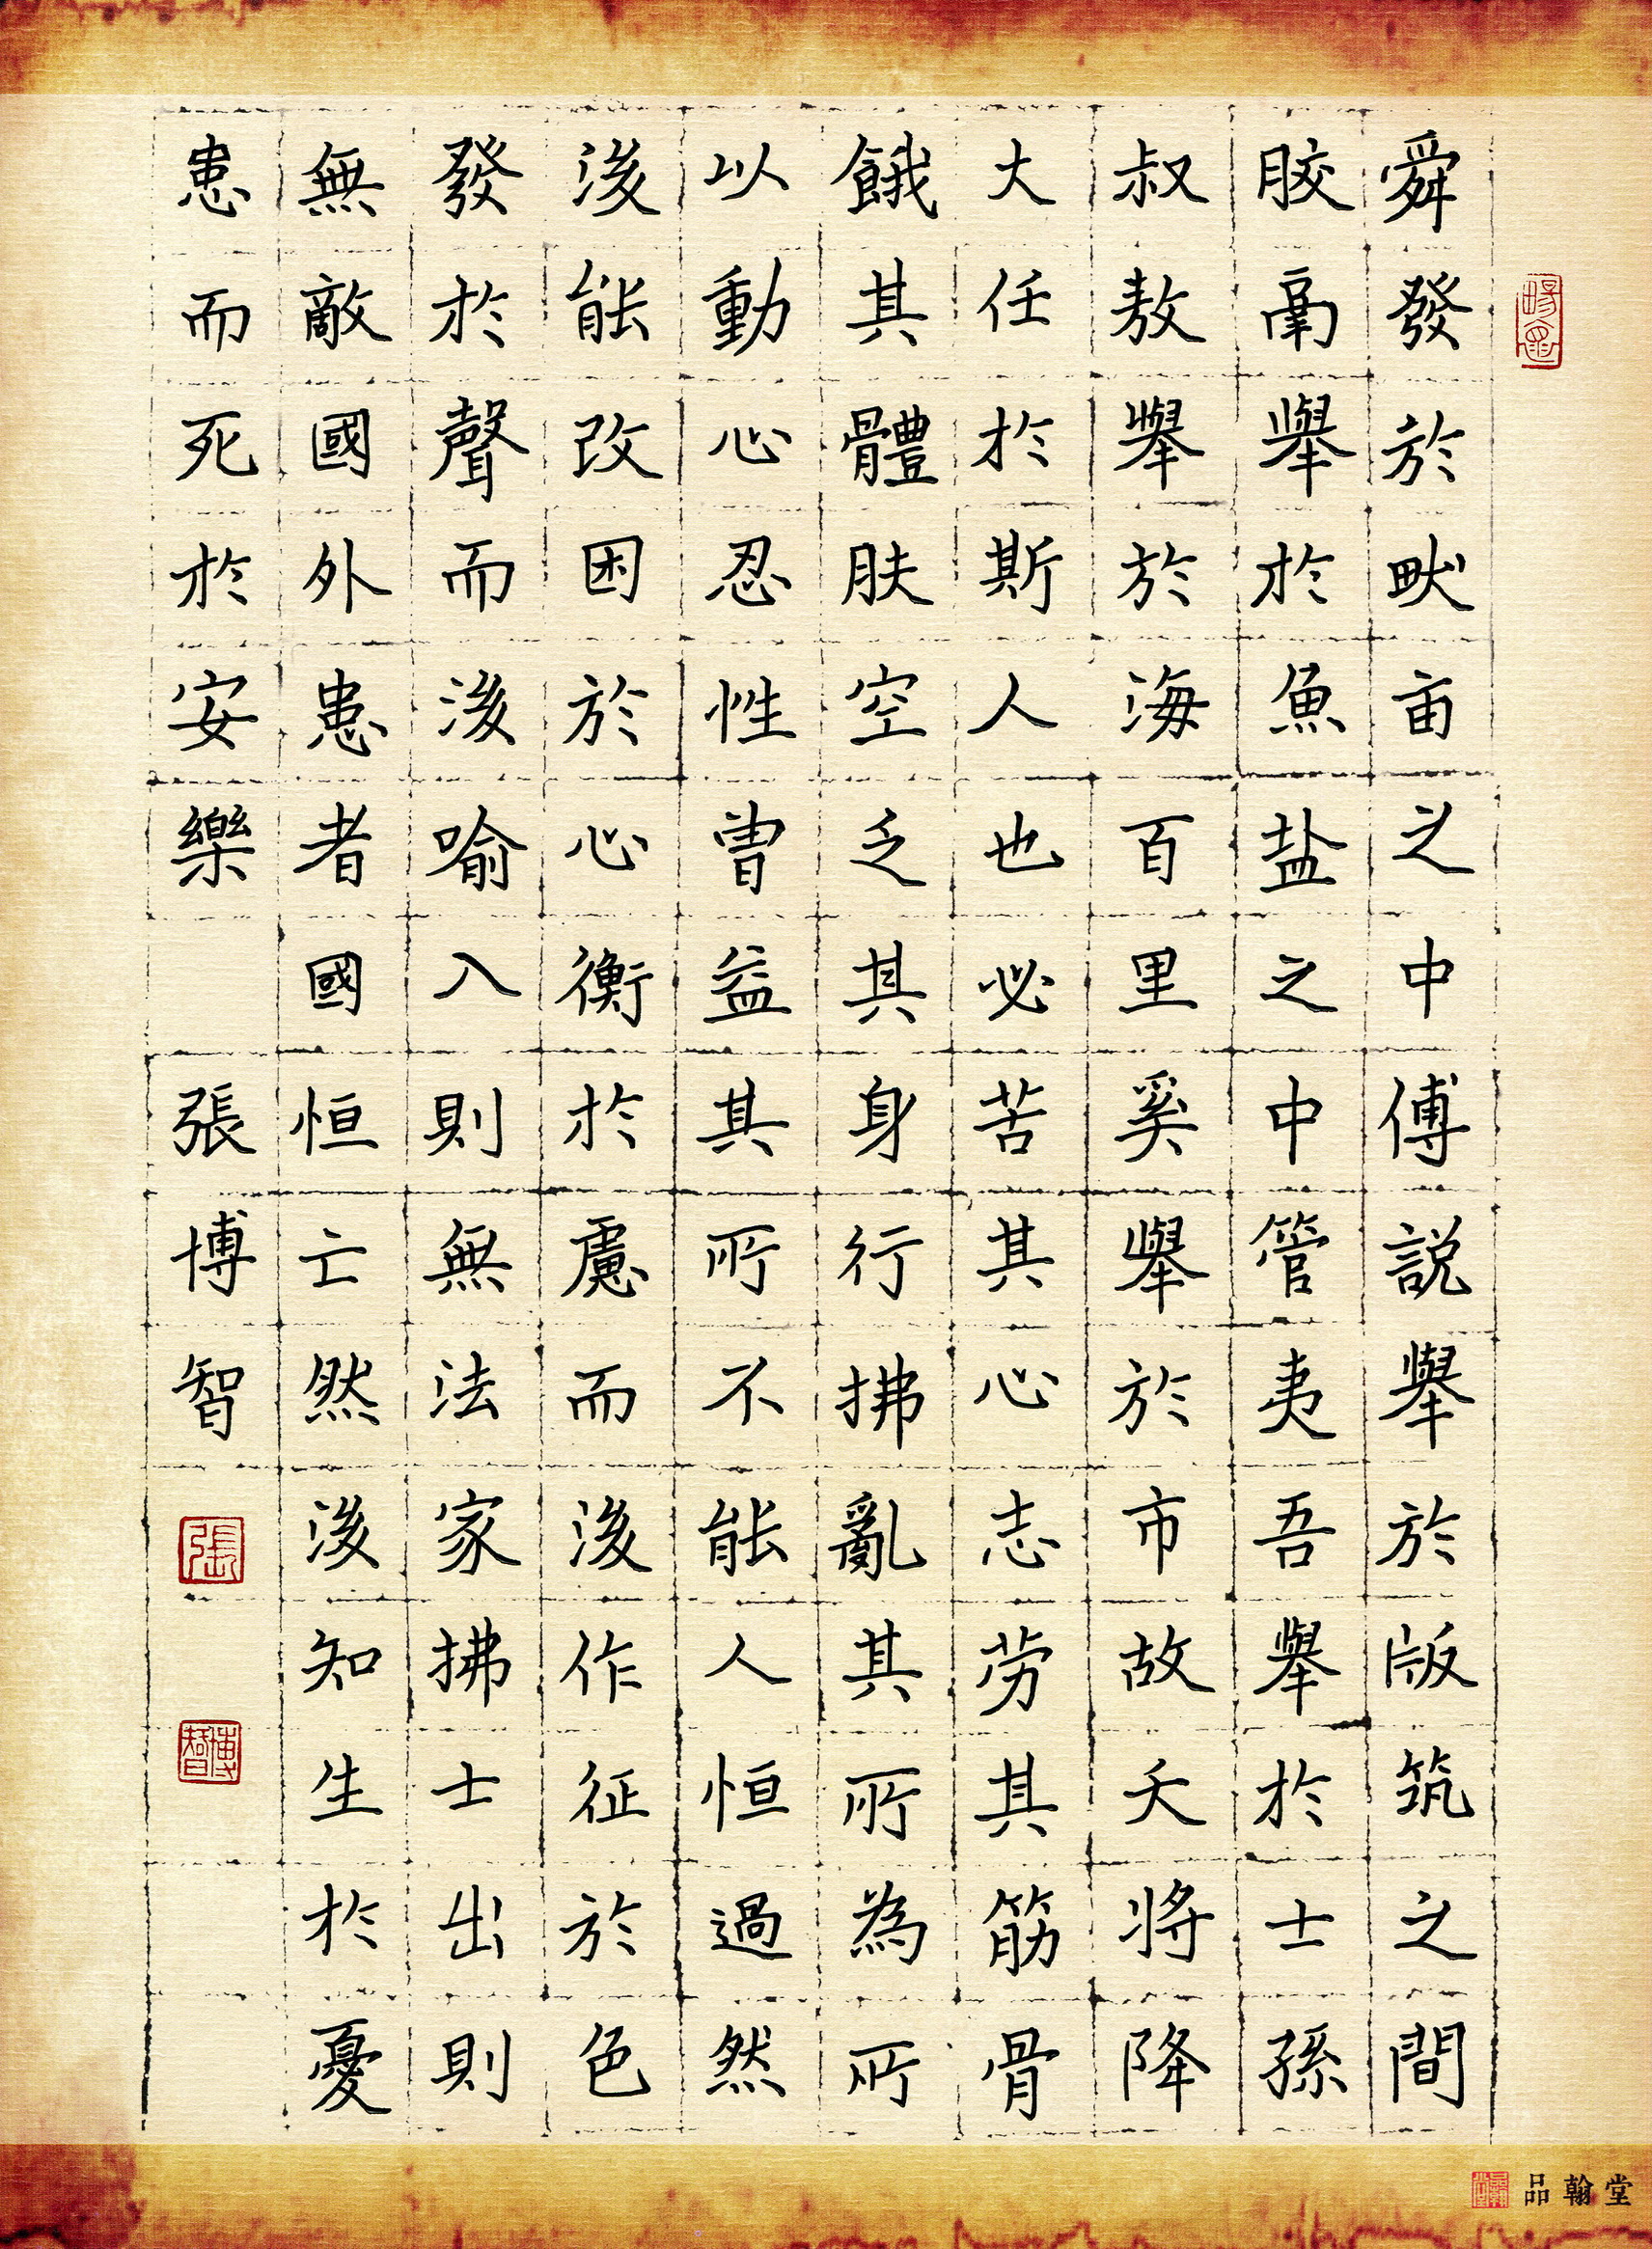 舜發於畎亩之中傅説舉於版筑之間
胶鬲舉於魚盐之中管夷吾舉於士孫
叔敖舉於海百里奚舉於市故天將降
大任於斯人也必苦其心志劳其筋骨
餓其體肤空乏其身行拂亂其所為所
以動心忍性曾益其所不能人恒過然
後能改困於心衡於慮而後作征於色
發於聲而後喻入則無法家拂士出則
無敵國外患者國恒亡然後知生於憂
患而死於安樂 張博智
張
博智
品翰堂